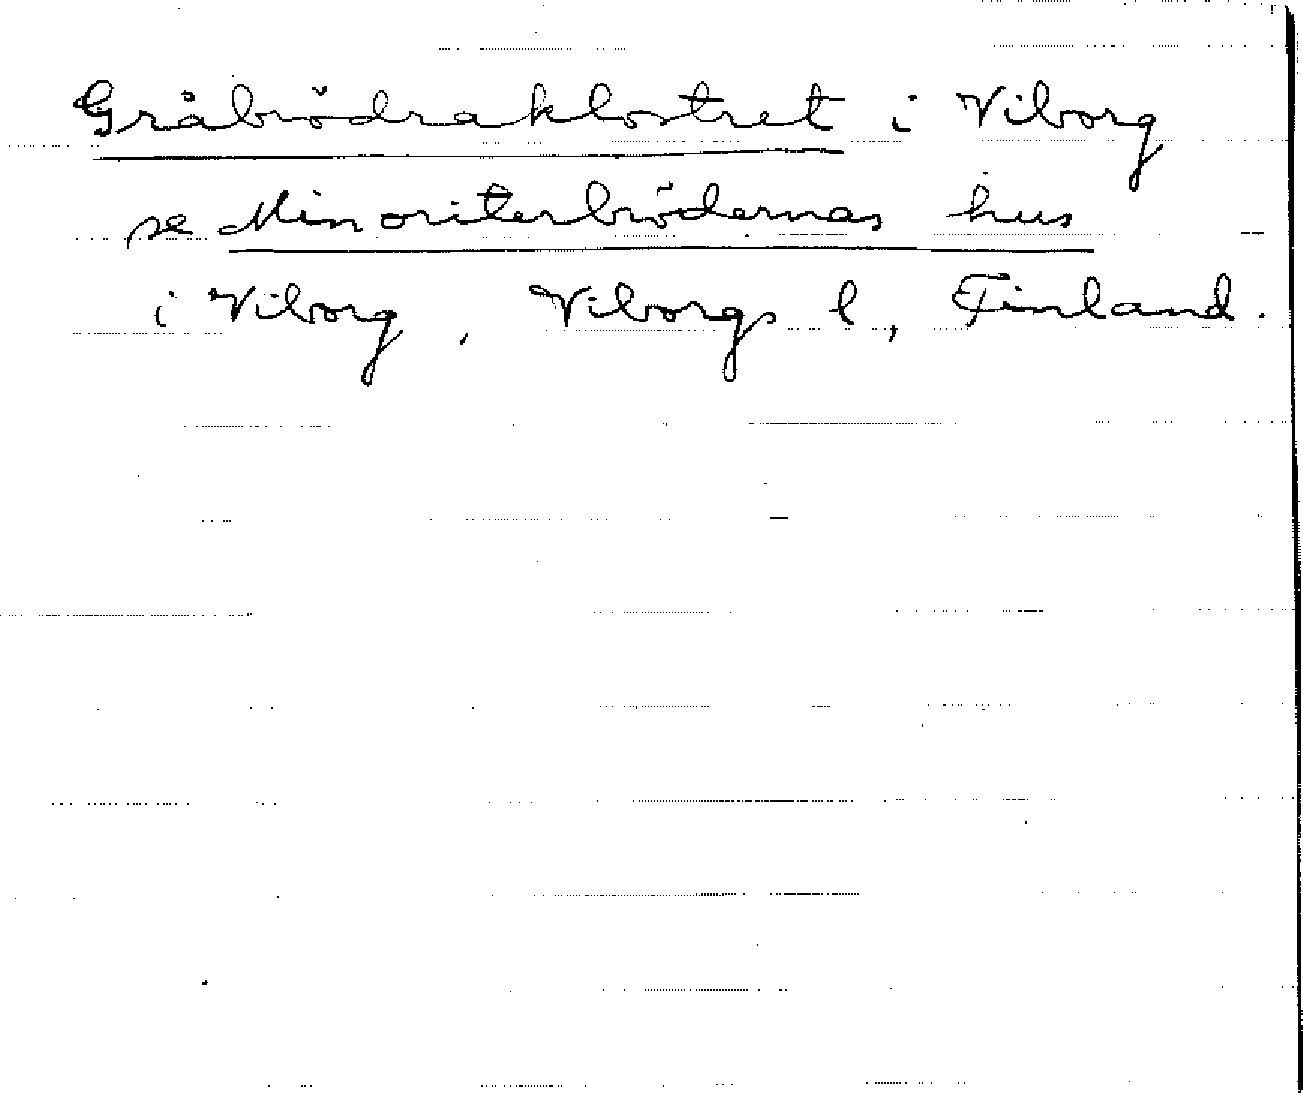 Gråbrödraklostret i Viborg
se Minoriterbrödernas hus
i Viborg, Viborgs l, Finland.